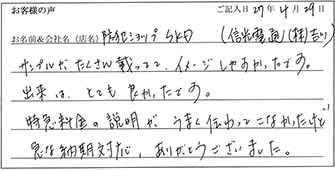 お客様の声 ご記入日 27年 4月 29日
お名前&会社名(店名) 防犯ショップSKD (信光電通(株)吉川)
サンプルがたくさん載ってて、イメージしやすかったです。
出来は、とても良かったです。
特急料金の説明が、うまく伝わってこなかったけど
急な納期対応、ありがとうございました。